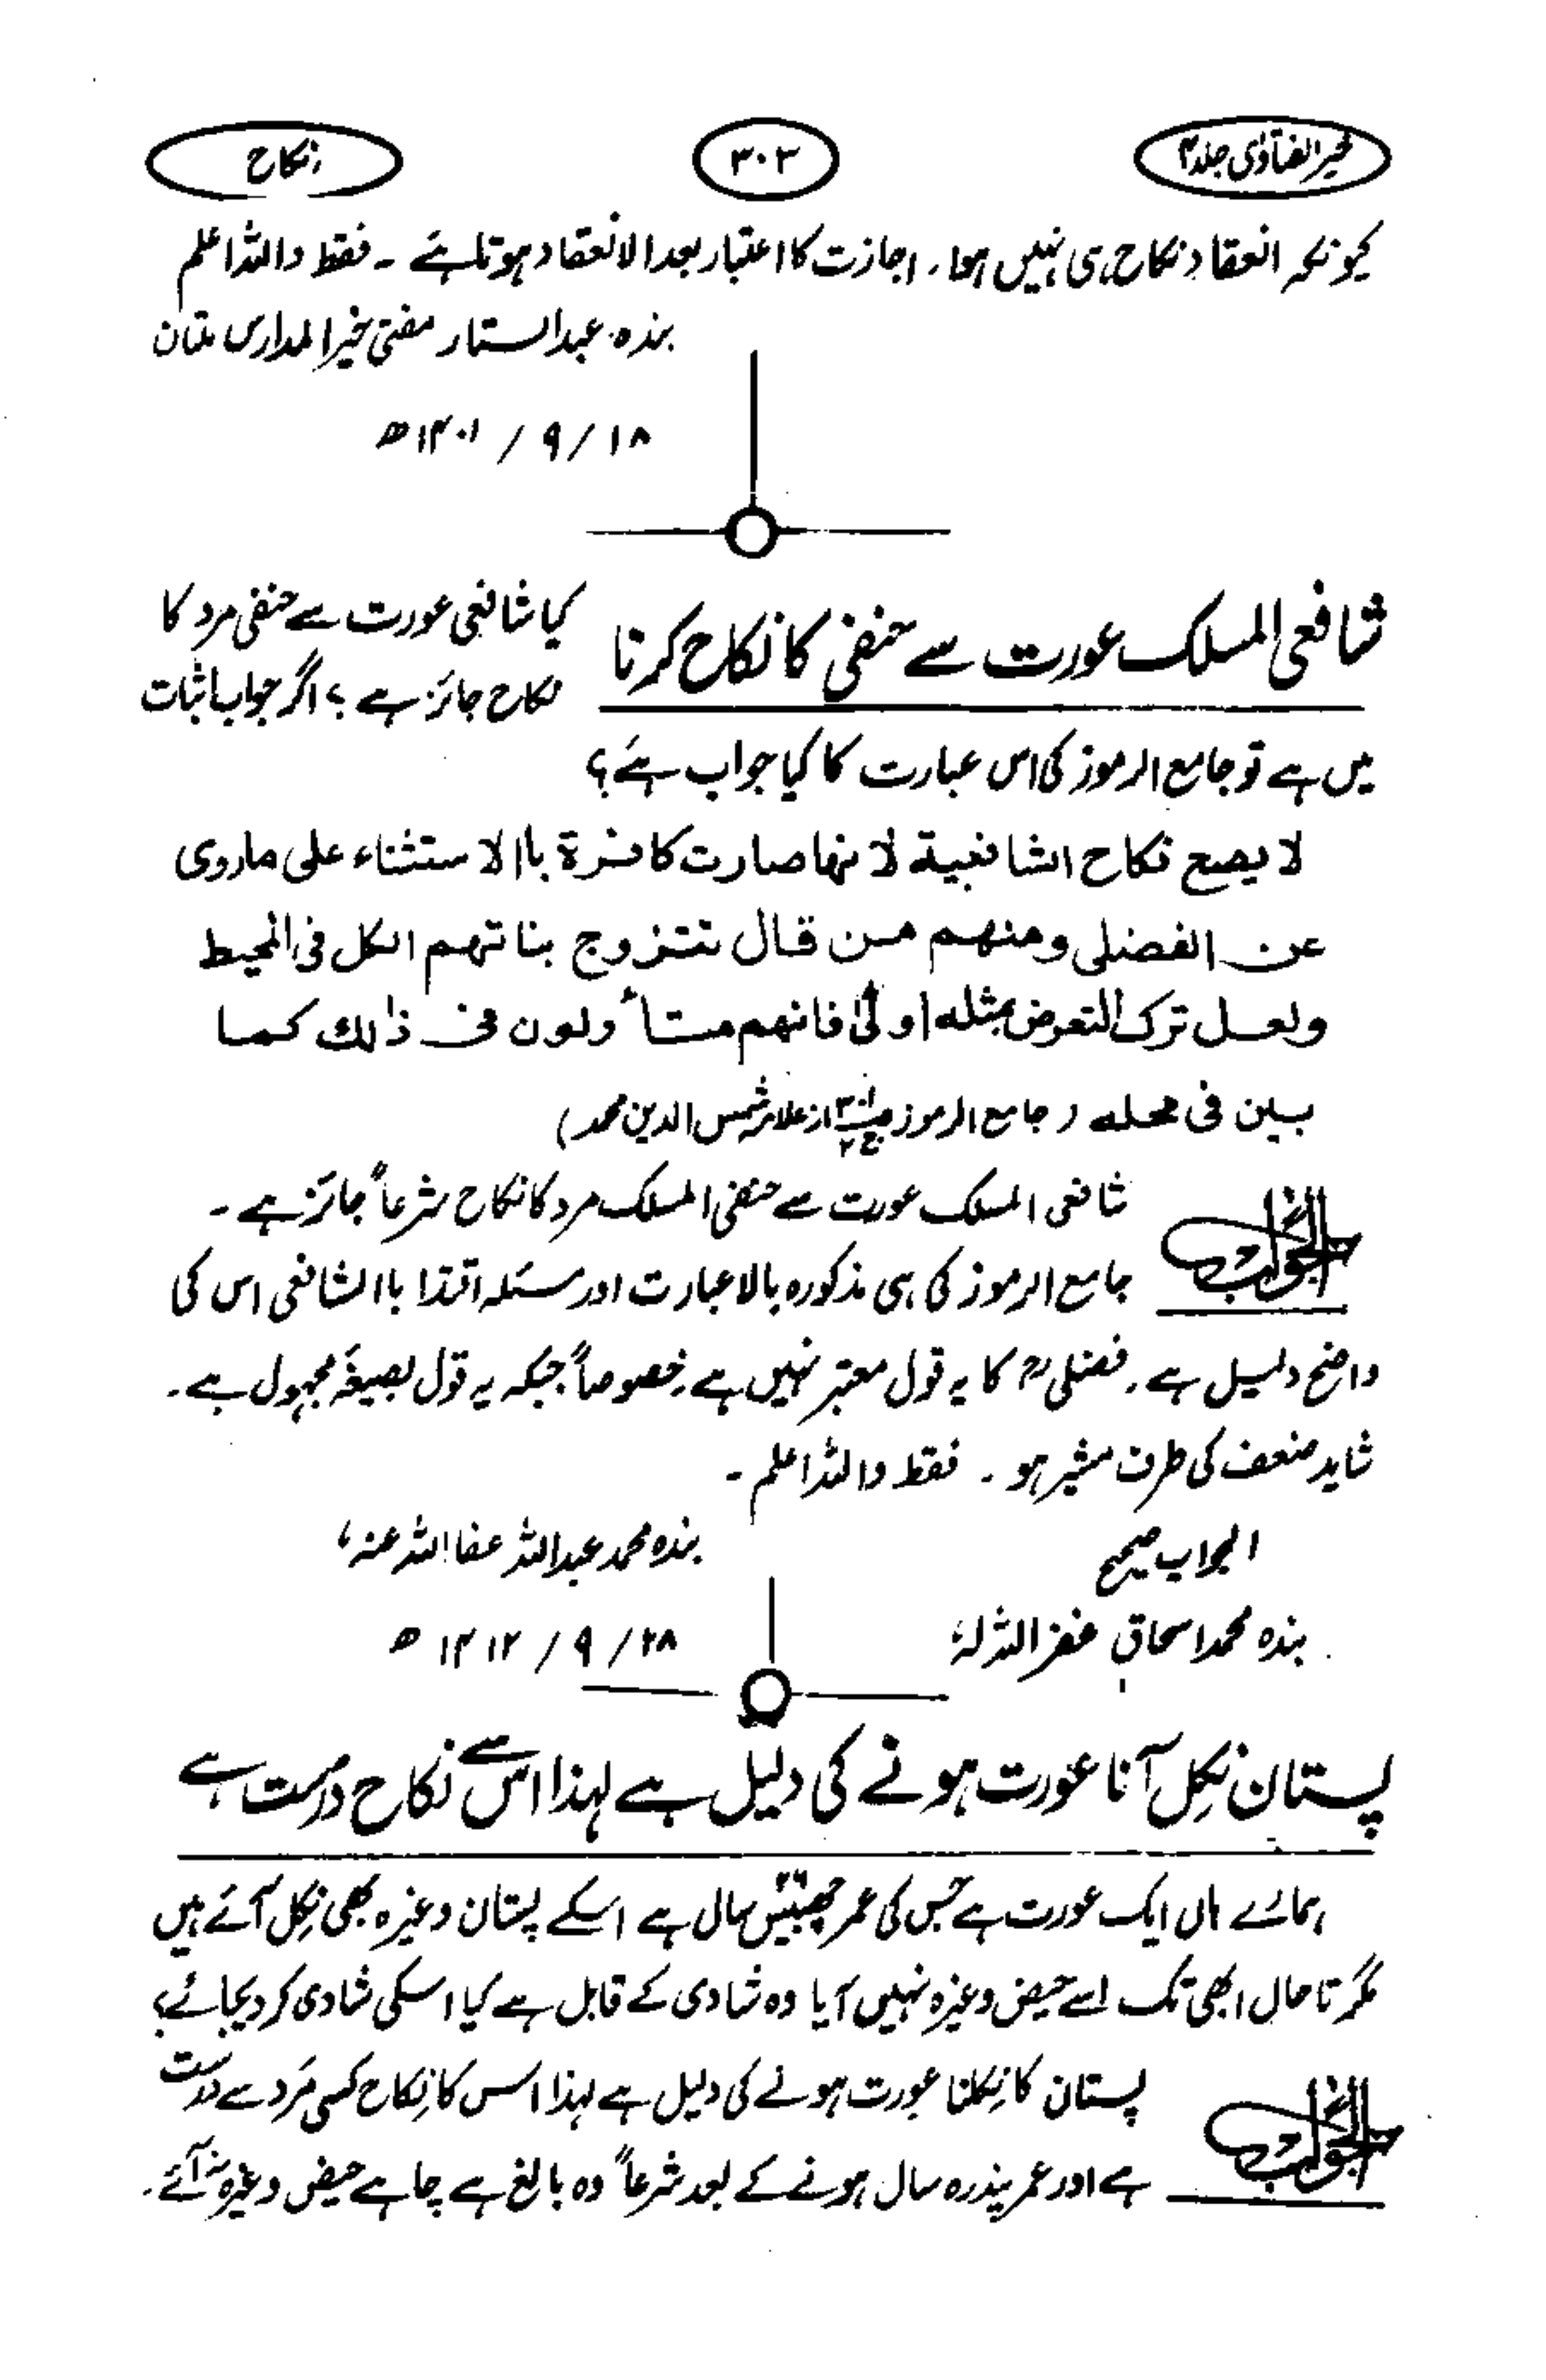 خیر الفتاوٰی جلد ۴
۳۰۳
نکاح
کیونکہ انعقاد نکاح ہی نہیں ہوا۔ اجازت کا اعتبار بعد الانعقاد ہوتا ہے ۔ فقط واللہ اعلم
بندہ عبدالستار مفتی خیر المدارس ملتان
۱۸ / ۹ / ۱۴۰۱ ھ
شافعی المسلک عورت سے حنفی کا نکاح کرنا
کیا شافعی عورت سے حنفی مرد کا
نکاح جائز ہے ؟ اگر جواب اثبات
میں ہے تو جامع الرموز کی اس عبارت کا کیا جواب ہے ؟
لا يصح نكاح الشافعية لانها صارت كافرة باالاستثناء على ماروى
عن الفضلى ومنهم من قال نتزوج بناتهم الكل فى المحيط
ولعل ترك التعرض بمثله اولىٰ فانهم متأولون فى ذالك كما
بين فى محله ( جامع الرموز از علامہ شمس الدین محمد )
الجواب
شافعی المسلک عورت سے حنفی المسلک مرد کا نکاح شرعاً جائز ہے ۔
جامع الرموز کی ہی مذکورہ بالا عبارت اور مسئلہ اقتدا باالشافعی اس کی
واضح دلیل ہے ۔ فضلیؒ کا یہ قول معتبر نہیں ہے ۔ خصوصاً جبکہ یہ قول بصیغۂ مجہول ہے ۔
شاید ضعف کی طرف مشیر ہو ۔ فقط واللہ اعلم ۔
الجواب صحیح
بندہ محمد عبداللہ عفا اللہ عنہ ،
بندہ محمد اسحاق غفر اللہ لہٗ
۲۸ / ۹ / ۱۴۱۲ ھ
پستان نکل آنا عورت ہونے کی دلیل ہے لہذا اس سے نکاح درست ہے
ہمارے ہاں ایک عورت ہے جس کی عمر چھبتیس سال ہے اسکے پستان وغیرہ بھی نکل آئے ہیں
مگر تا حال ابھی تک اسے حیض وغیرہ نہیں آیا وہ شادی کے قابل ہے کیا اسکی شادی کر دیجائے ؟
الجواب
پستان کا نکلنا عورت ہونے کی دلیل ہے لہذا اس کا نکاح کسی مرد سے درست
ہے اور عمر پندرہ سال ہونے کے بعد شرعاً وہ بالغ ہے چاہے حیض وغیرہ نہ آئے ۔